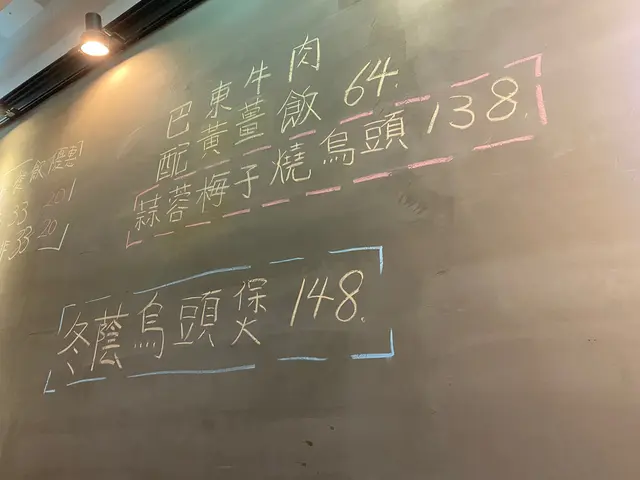 巴東牛肉
配黃薑飯 64.
蒜蓉梅子燒烏頭 138.
冬蔭烏頭煲 148.
飲優惠
33 20
33 20